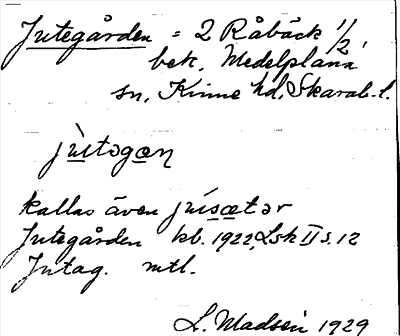 Jutegården = 2 Råbäck 1/2,
bek. Medelplana
sn, Kinne hd, Skarab. l.
jùtəgaƞ
kallas även júisætər
Jutegården kb. 1922, Lsk II s. 12
Jutag. mtl.
L. Madsén 1929